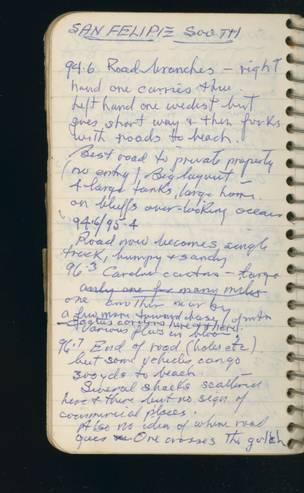 SAN FELIPIE SOUTH
94.6 Road branches - right
hand one carries thru
left hand one widest but
goes short way & then forks
with roads to beach.
Best road to private property
(no entry) Big layout -
4 large tanks, large home
on bluffs over-looking ocean
94.6/95-4
Road now becomes single
track, bumpy & sandy
96.3 Cardon cactus - large
only one for many miles
one another near by
a few more toward base of mtn
here & there
Various plus in
96.7 End of road (holes etc)
but some vehicles can go
300 yds to beach
Several shacks scattered
here & there but no sign of
commercial places.
Also no idea of where road
goes One crosses the gulch